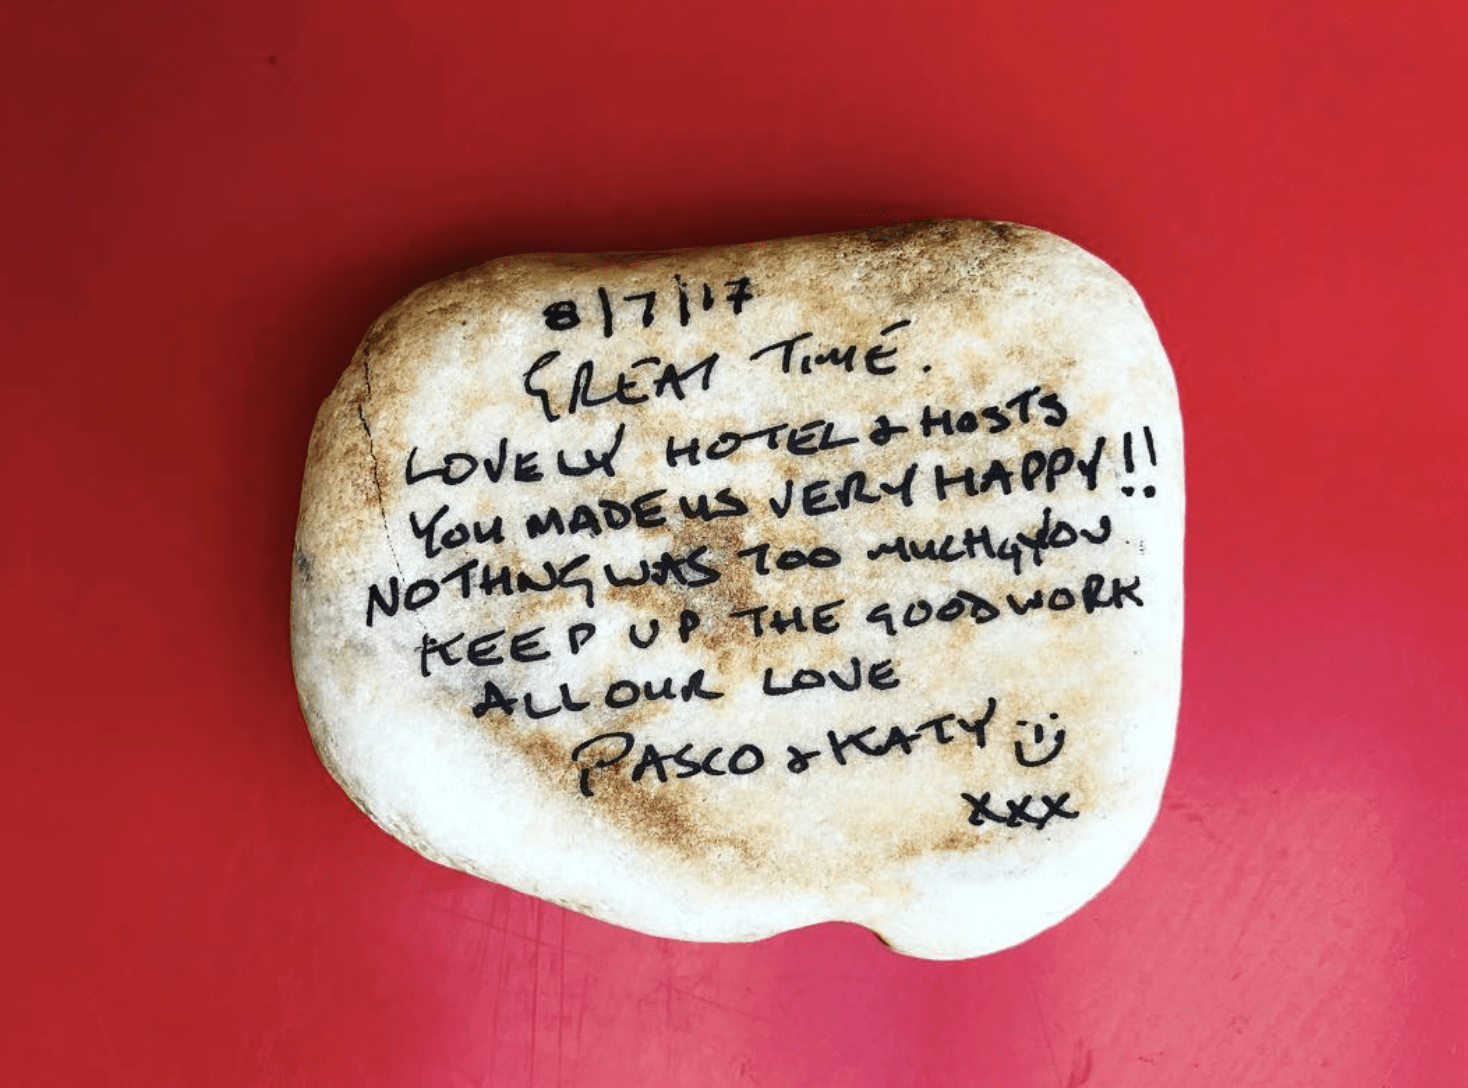 8/7/17
GREAT TIME.
LOVELY HOTEL & HOSTS
YOU MADE US VERY HAPPY!!
NOTHNG WAS TOO MUCH 4 YOU
KEEP UP THE GOOD WORK
ALL OUR LOVE
PASCO & KATY
xxx